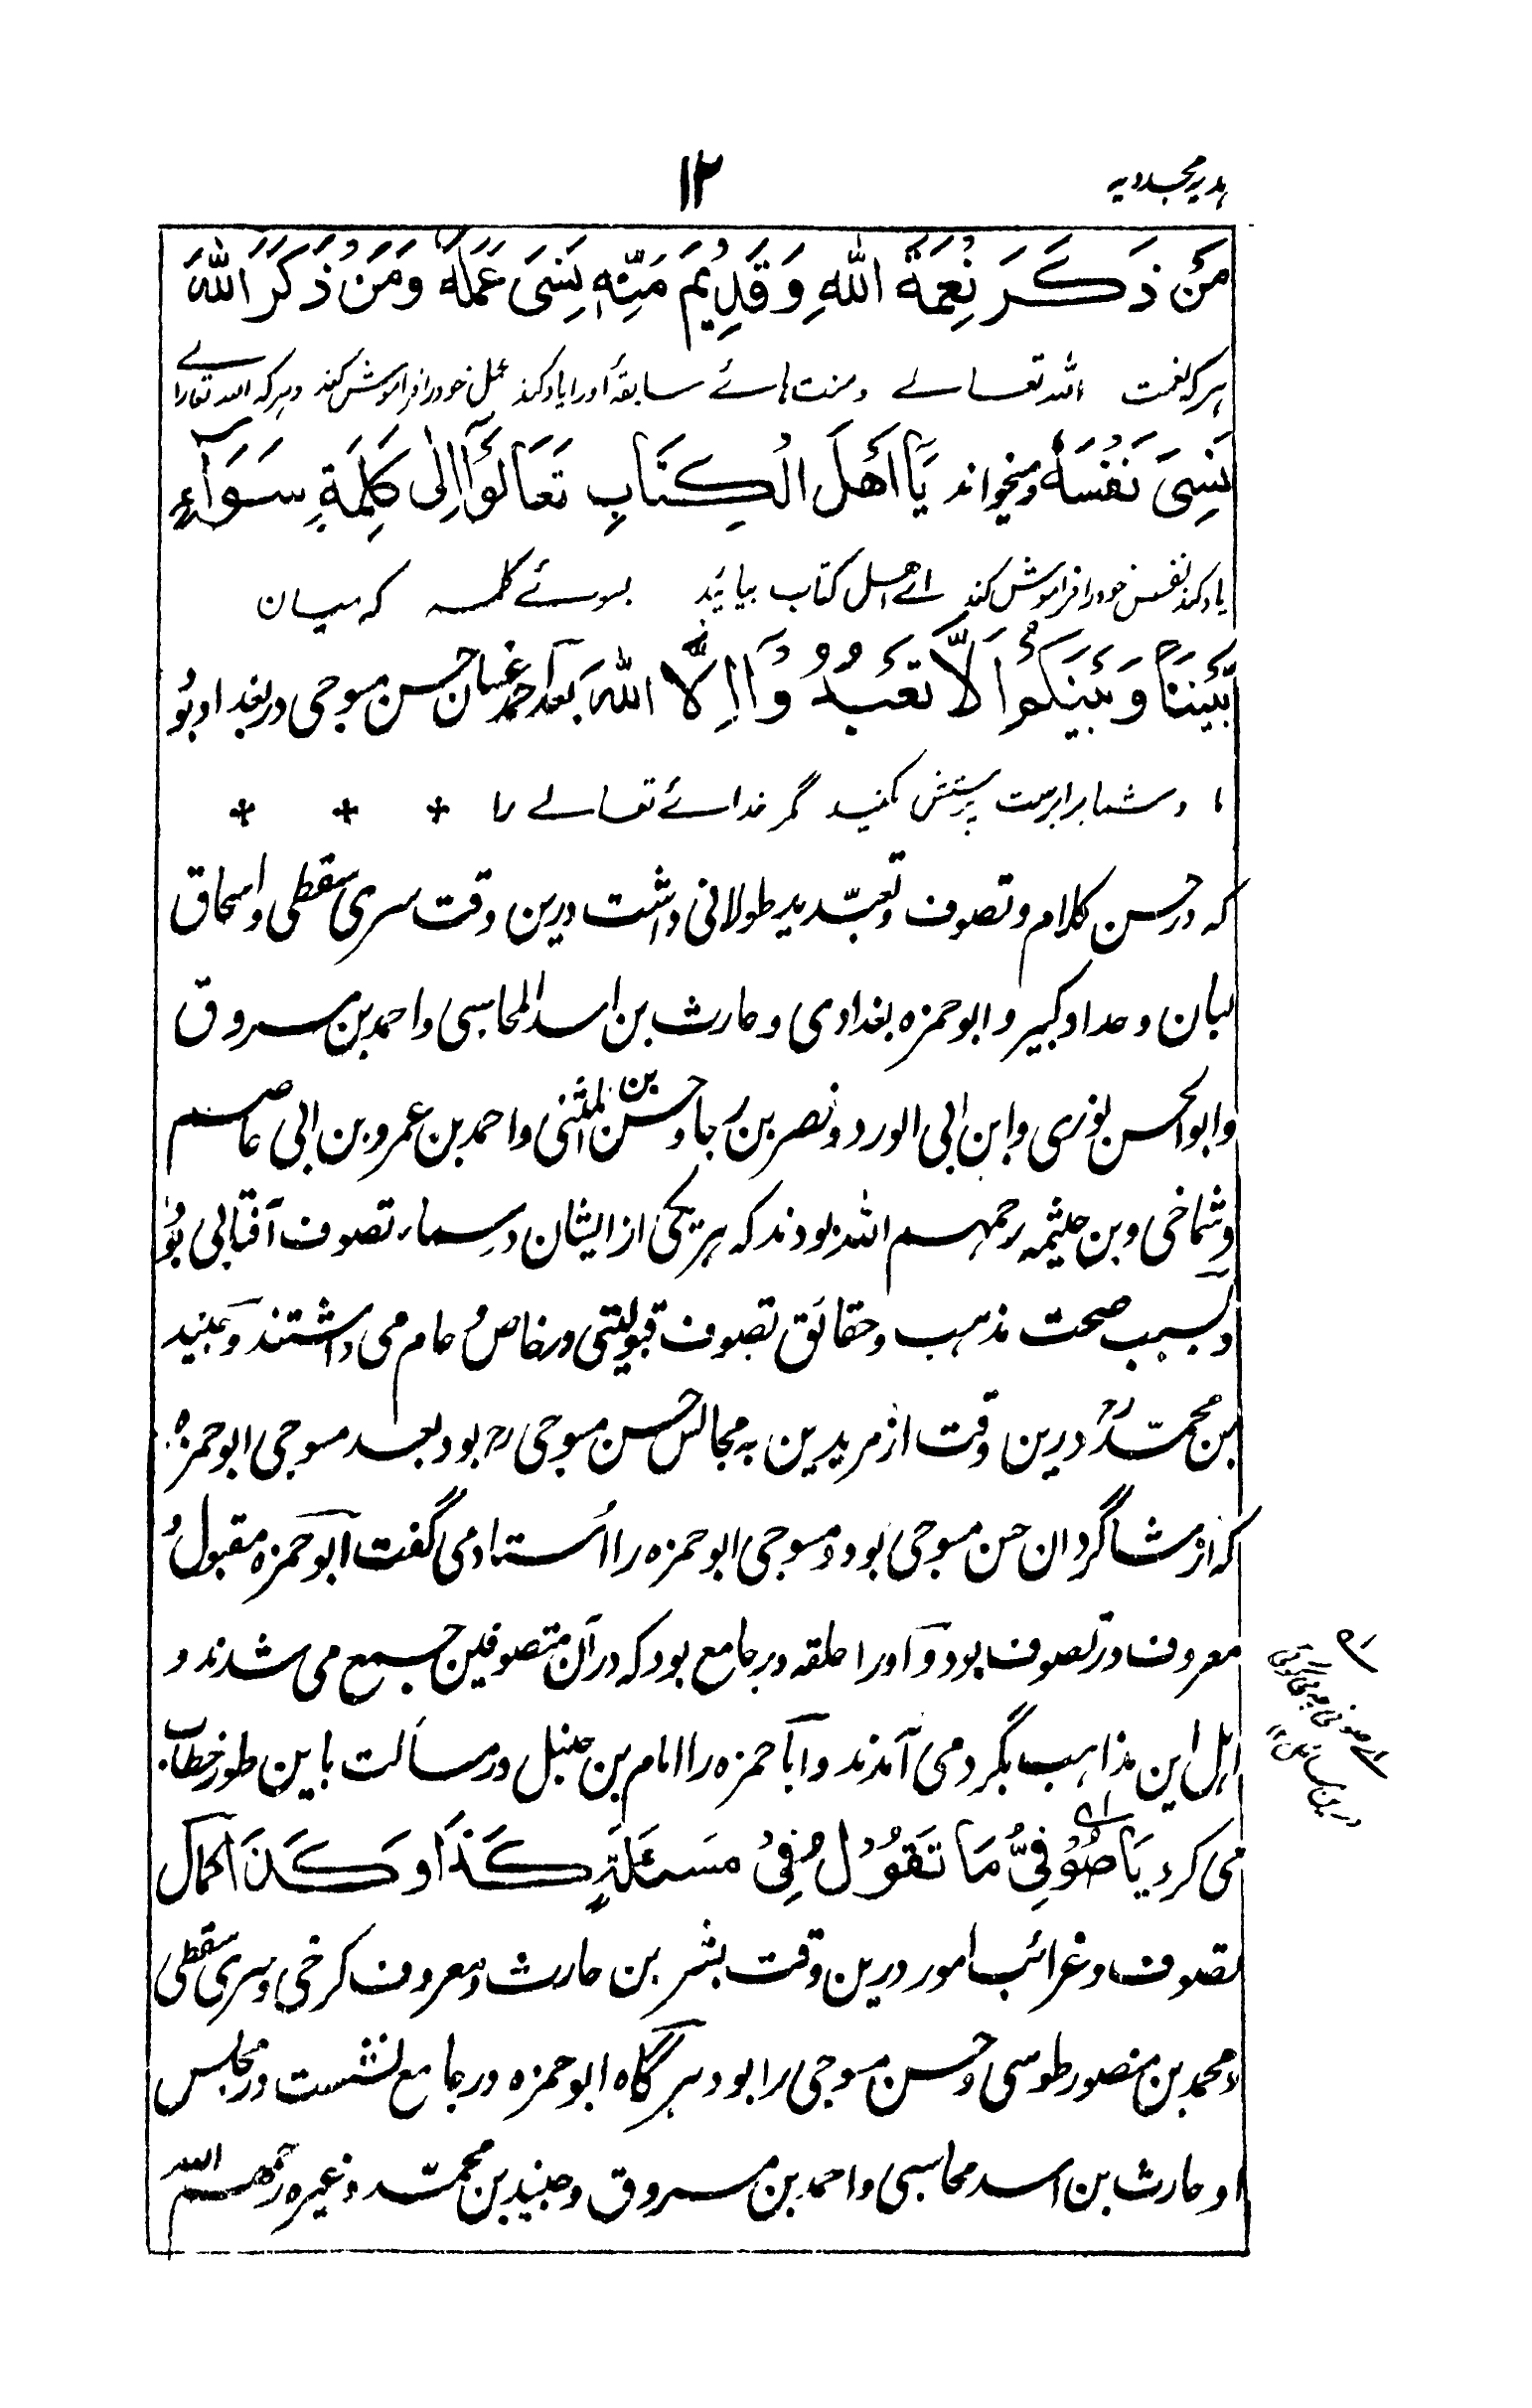 ہدیہ مجددیہ
۱۲
مَنْ ذَكَرَ نِعْمَةَ اللهِ وَقَدِيْمَ مَنِّهٖ نَسِیَ عَمَلَهٗ وَمَنْ ذَكَرَ اللهَ
ہرکہ نعمت اللہ تعالے و منت ہائے سابقۂ اورا یاد کند عمل خود را فراموش کند و ہرکہ اللہ تعالے را
نَسِیَ نَفْسَهٗ و میخواند يَا اَهْلَ الْكِتَابِ تَعَالَوْا اِلٰى كَلِمَةٍ سَوَآءٍ
یاد کند نفس خود را فراموش کند اے اہل کتاب بیائید بسوئے کلمہ کہ میان
بَيْنَنَا وَبَيْنَكُمْ اَلَّا نَعْبُدُوْا اِلَّا اللهَ بعد احمد غسان حسن مسوحی در بغداد بود
ما و شما برابرست پرستش نکنید مگر خدائے تعالے را
که در حسن کلام و تصوف و تعبّد ید طولانی داشت درین وقت سری سقطی و اسحاق
لبان و حداد کبیر و ابو حمزه بغدادی و حارث بن اسد المحاسبی و احمد بن مسروق
و ابو الحسن نوری و ابن ابی الورد و نصر بن رجا و حسن بن المثنی و احمد بن عمرو بن ابی عاصم
و شماخی و بن حثیمه رحمهم الله بودند که هریکی از ایشان در سماء تصوف آفتابی بود
و بسبب صحت مذهب و حقائق تصوف قبولیتی در خاص و عام می داشتند و جنید
بن محمّد رح درین وقت از مریدین به مجالس حسن مسوحی رح بود بعد مسوحی ابو حمزه
که از شاگردان حسن مسوحی بود و مسوحی ابو حمزه را اُستاد می گفت ابو حمزه مقبول و
معروف در تصوف بود و او را حلقه در جامع بود که در آن متصوفین جمع می شدند و
اہل این مذاہب بگرد می آمدند و ابا حمزه را امام بن حنبل در مسألت باین طور خطاب
می کرد يَا صُوْفِیُّ مَا تَقُوْلُ فِیْ مَسْئَلَةٍ كَذَا وَكَذَا کمال
تصوف و غرائب امور درین وقت بشر بن حارث و معروف کرخی و سری سقطی
و محمد بن منصور طوسی و حسن مسوحی را بود هرگاه ابو حمزه در جامع نشست در مجلس
او حارث بن اسد محاسبی و احمد بن مسروق و جنید بن محمّد وغیره رحمهم الله
اے صوفی چه می گوئی
درین مسائل